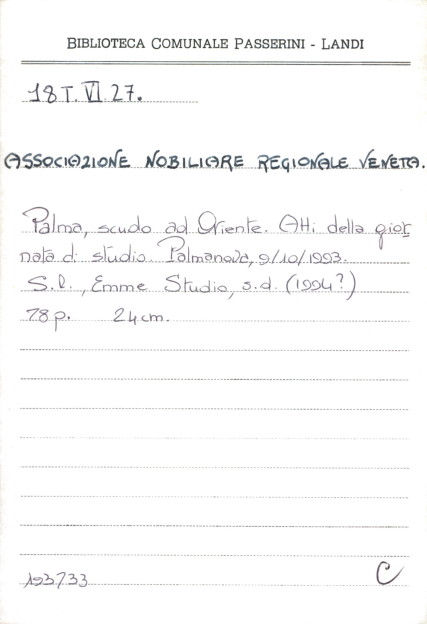 BIBLIOTECA COMUNALE PASSERINI - LANDI
18 T. VI. 27.
ASSOCIAZIONE NOBILIARE REGIONALE VENETA.
Palma, scudo ad Oriente. Atti della gior
nata di studio. Palmanova, 9/10/1993.
S.l., Emme Studio, s.d. (1994?)
78 p. 24 cm.
193733 C